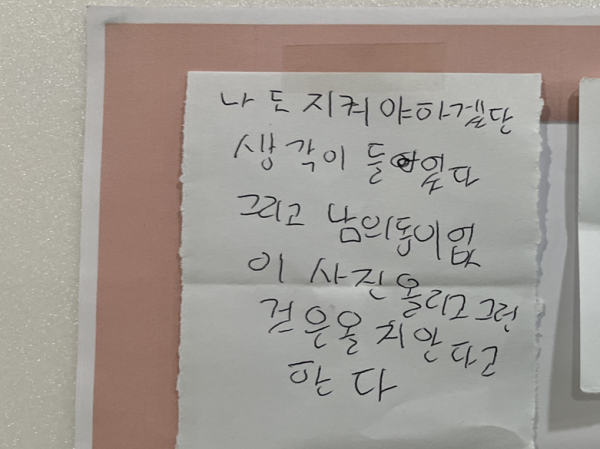 나도 지켜야하겠단
생각이 들었다
그리고 남의동이없
이 사진올리고그런
것은올치안다고
한다